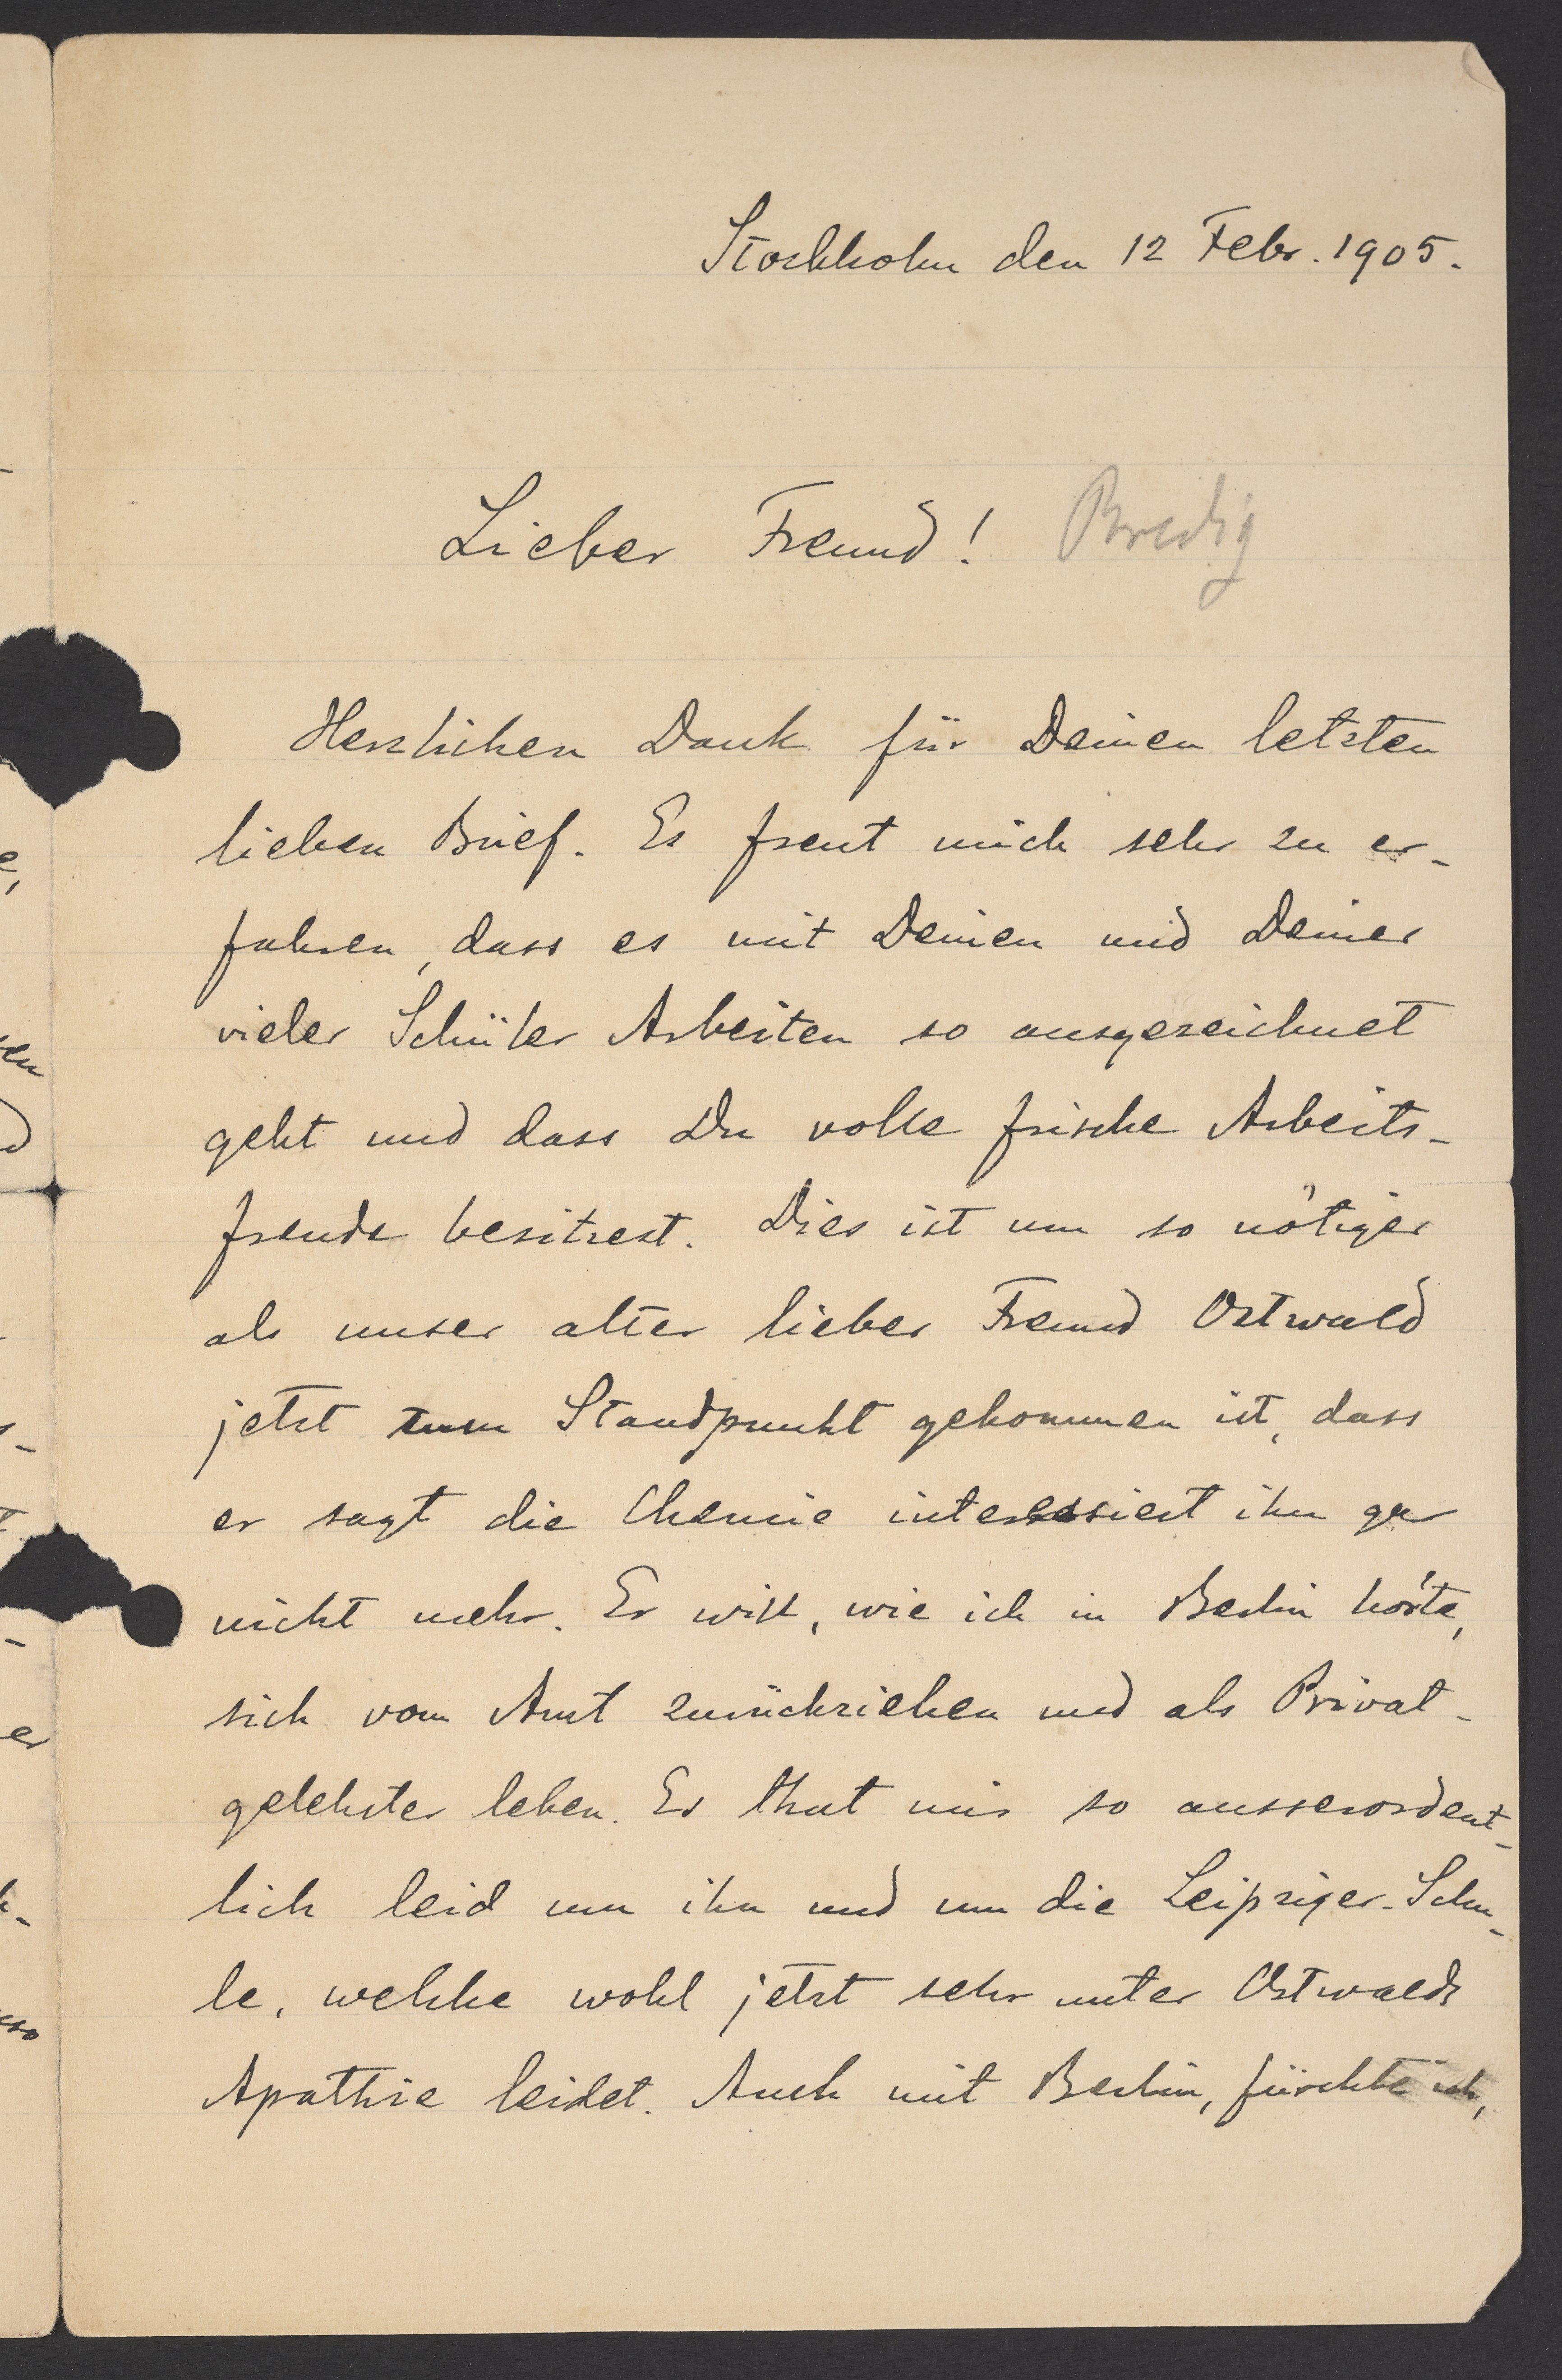 Stockholm den 12 Febr. 1905.
Lieber Freund! Bredig
Herzlichen Dank für Deinen letzten
lieben Brief. Es freut mich sehr zu er-
fahren, dass es mit Deinen und Deiner
vieler Schüler Arbeiten so ausgezeichnet
geht und dass Du volle frische Arbeits-
freude besitzest. Dies ist um so nötiger
als unser alter lieber Freund Ostwald
jetzt zum Standpunkt gekommen ist, dass
er sagt die Chemie interessiert ihn gar
nicht mehr. Er will, wie ich in Berlin hörte,
sich vom Amt zurückziehen und als Privat-
gelehrter leben. Es thut mir so ausserordent-
lich leid um ihn und um die Leipziger-Schu-
le, welche wohl jetzt sehr unter Ostwalds
Apathie leidet. Auch mit Berlin, fürchte ich,